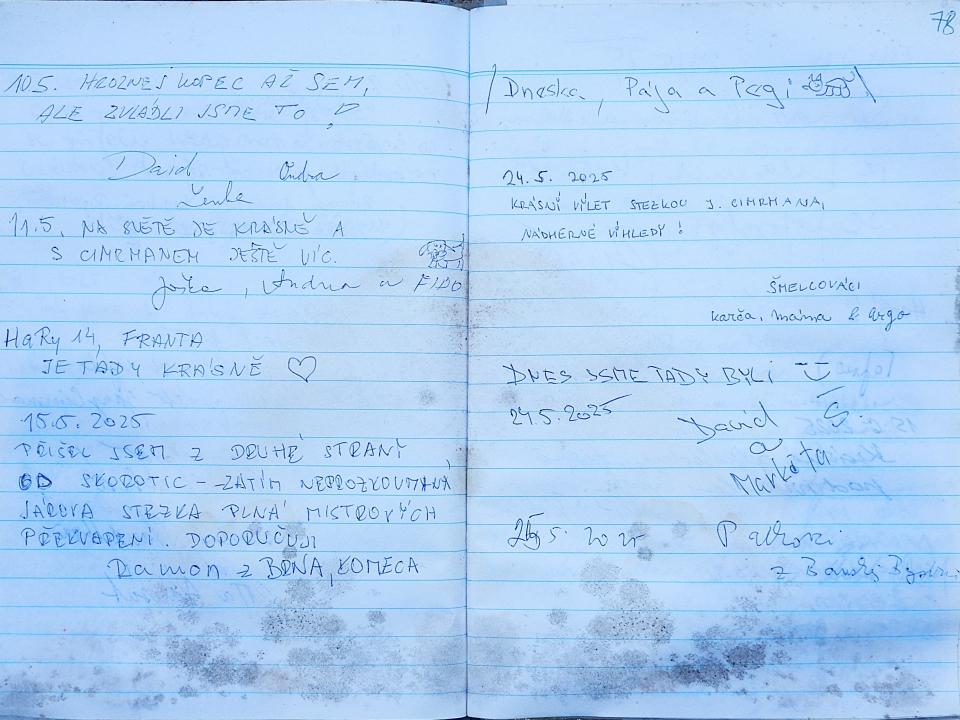 10.5. HROZNEJ KOPEC AŽ SEM,
ALE ZVLÁDLI JSME TO!
David Ondra
Lenka
11.5. NA SVĚTĚ JE KRÁSNĚ A
S CIMRMANEM JEŠTĚ VÍC.
Joška, Andrea a FIDO
HaRy 14, FRANTA
JE TADY KRÁSNĚ ♡
15.5.2025
PŘIŠEL JSEM Z DRUHÉ STRANY
OD SKOROTIC – ZATÍM NEPROZKOUMANÁ
JÁROVA STEZKA PLNÁ MISTROVÝCH
PŘEKVAPENÍ. DOPORUČUJI
Ramon z BRNA, KOMECA
78
/ Dneska, Pája a Pegi \
24.5. 2025
KRÁSNÝ VÝLET STEZKOU J. CIMRMANA,
NÁDHERNÉ VÝHLEDY!
ŠMELCOVÁCI
Karča, máma & Argo
DNES JSME TADY BYLI
24.5.2025
David Š.
a
Markéta
5. 2025
z Banskej Bystrice